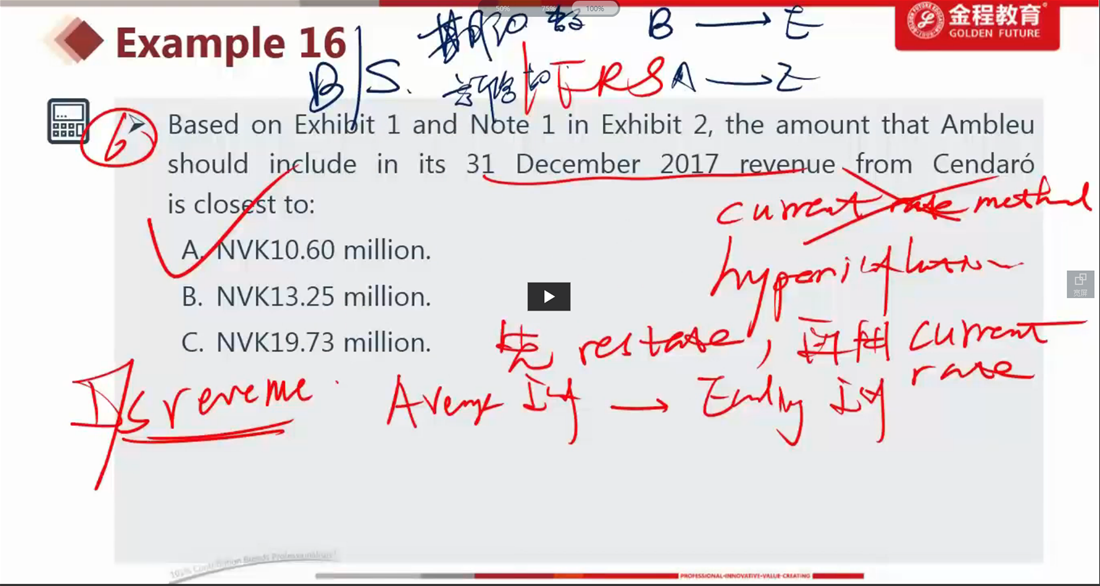 100%
金程教育
GOLDEN FUTURE
Example 16
B → E
B/S. IFRS A → E
6
Based on Exhibit 1 and Note 1 in Exhibit 2, the amount that Ambleu
should include in its 31 December 2017 revenue from Cendaró
is closest to:
current rate method
A. NVK10.60 million.
B. NVK13.25 million.
C. NVK19.73 million.
先 restate, 再用 current
rate
I/S revenue
Average → Ending
PROFESSIONAL·INNOVATIVE·VALUE-CREATING